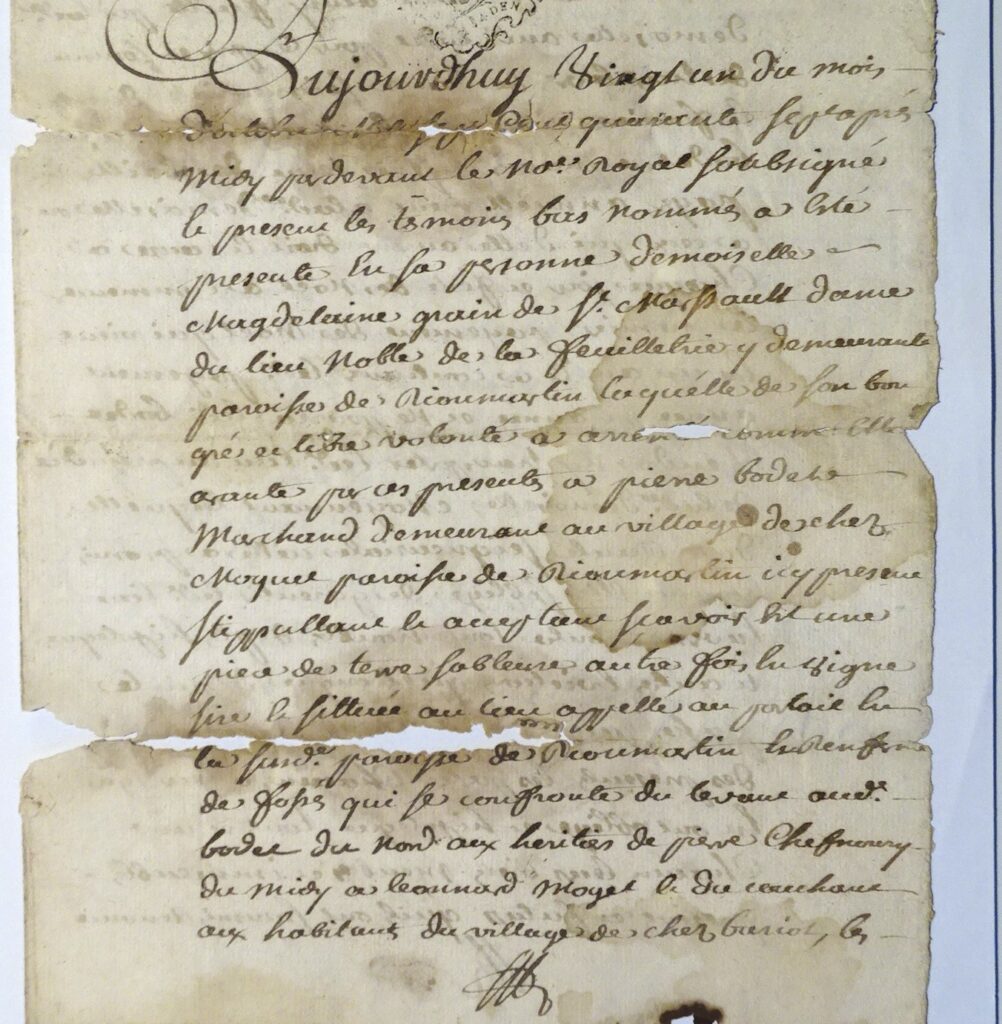 Aujourdhuy Vingt un du mois
d'octobre sept Cent quarente sept apres
Midy par devant le No.re Royal soubsigné
le present les temoins bas nommés a esté
presente En sa personne demoiselle
Magdelaine grain de St. Marsault dame
du lieu Noble de la feuilletrie y demeurante
paroisse de Rioumartin laquelle de son bon
gré et libre volonté a comme Elle
arante par ces presentes a pierre bodet
Marchand demeurant au village de chez
Moquet paroisse de Rioumartin icy present
stippullant le acceptant scavoir Est une
piece de terre sableuse autre fois En vigne
sise le sittuée au lieu appellé au portail En
la susd.e paroisse de Rioumartin Enrenfermé
de fossés qui se confronte du levant aud.
bodet du Nord aux heritiés de pierre Chefnoury
du Midy a leonnard Moyet le du couchant
aux habitants du village de chez buriot, les